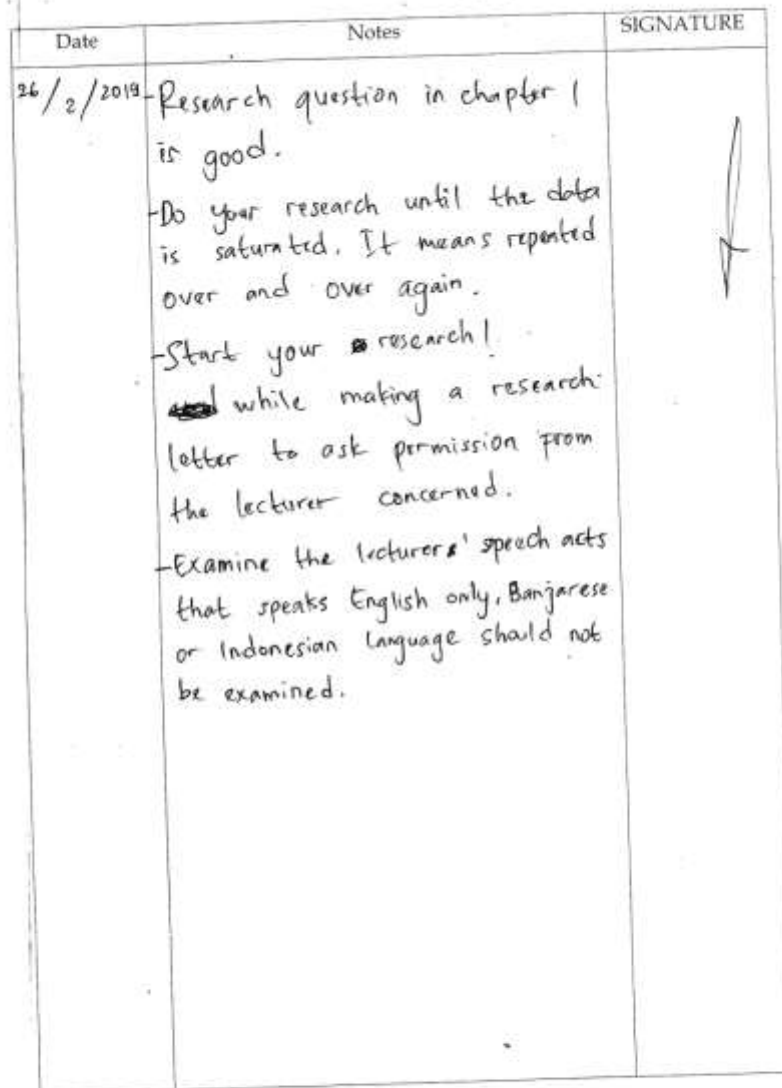 Date Notes SIGNATURE
26/2/2019 -Research question in chapter 1
is good.
-Do your research until the data
is saturated. It means repeated
over and over again.
-Start your research!
while making a research
letter to ask permission from
the lecturer concerned.
-Examine the lecturers' speech acts
that speaks English only, Banjarese
or Indonesian language should not
be examined.